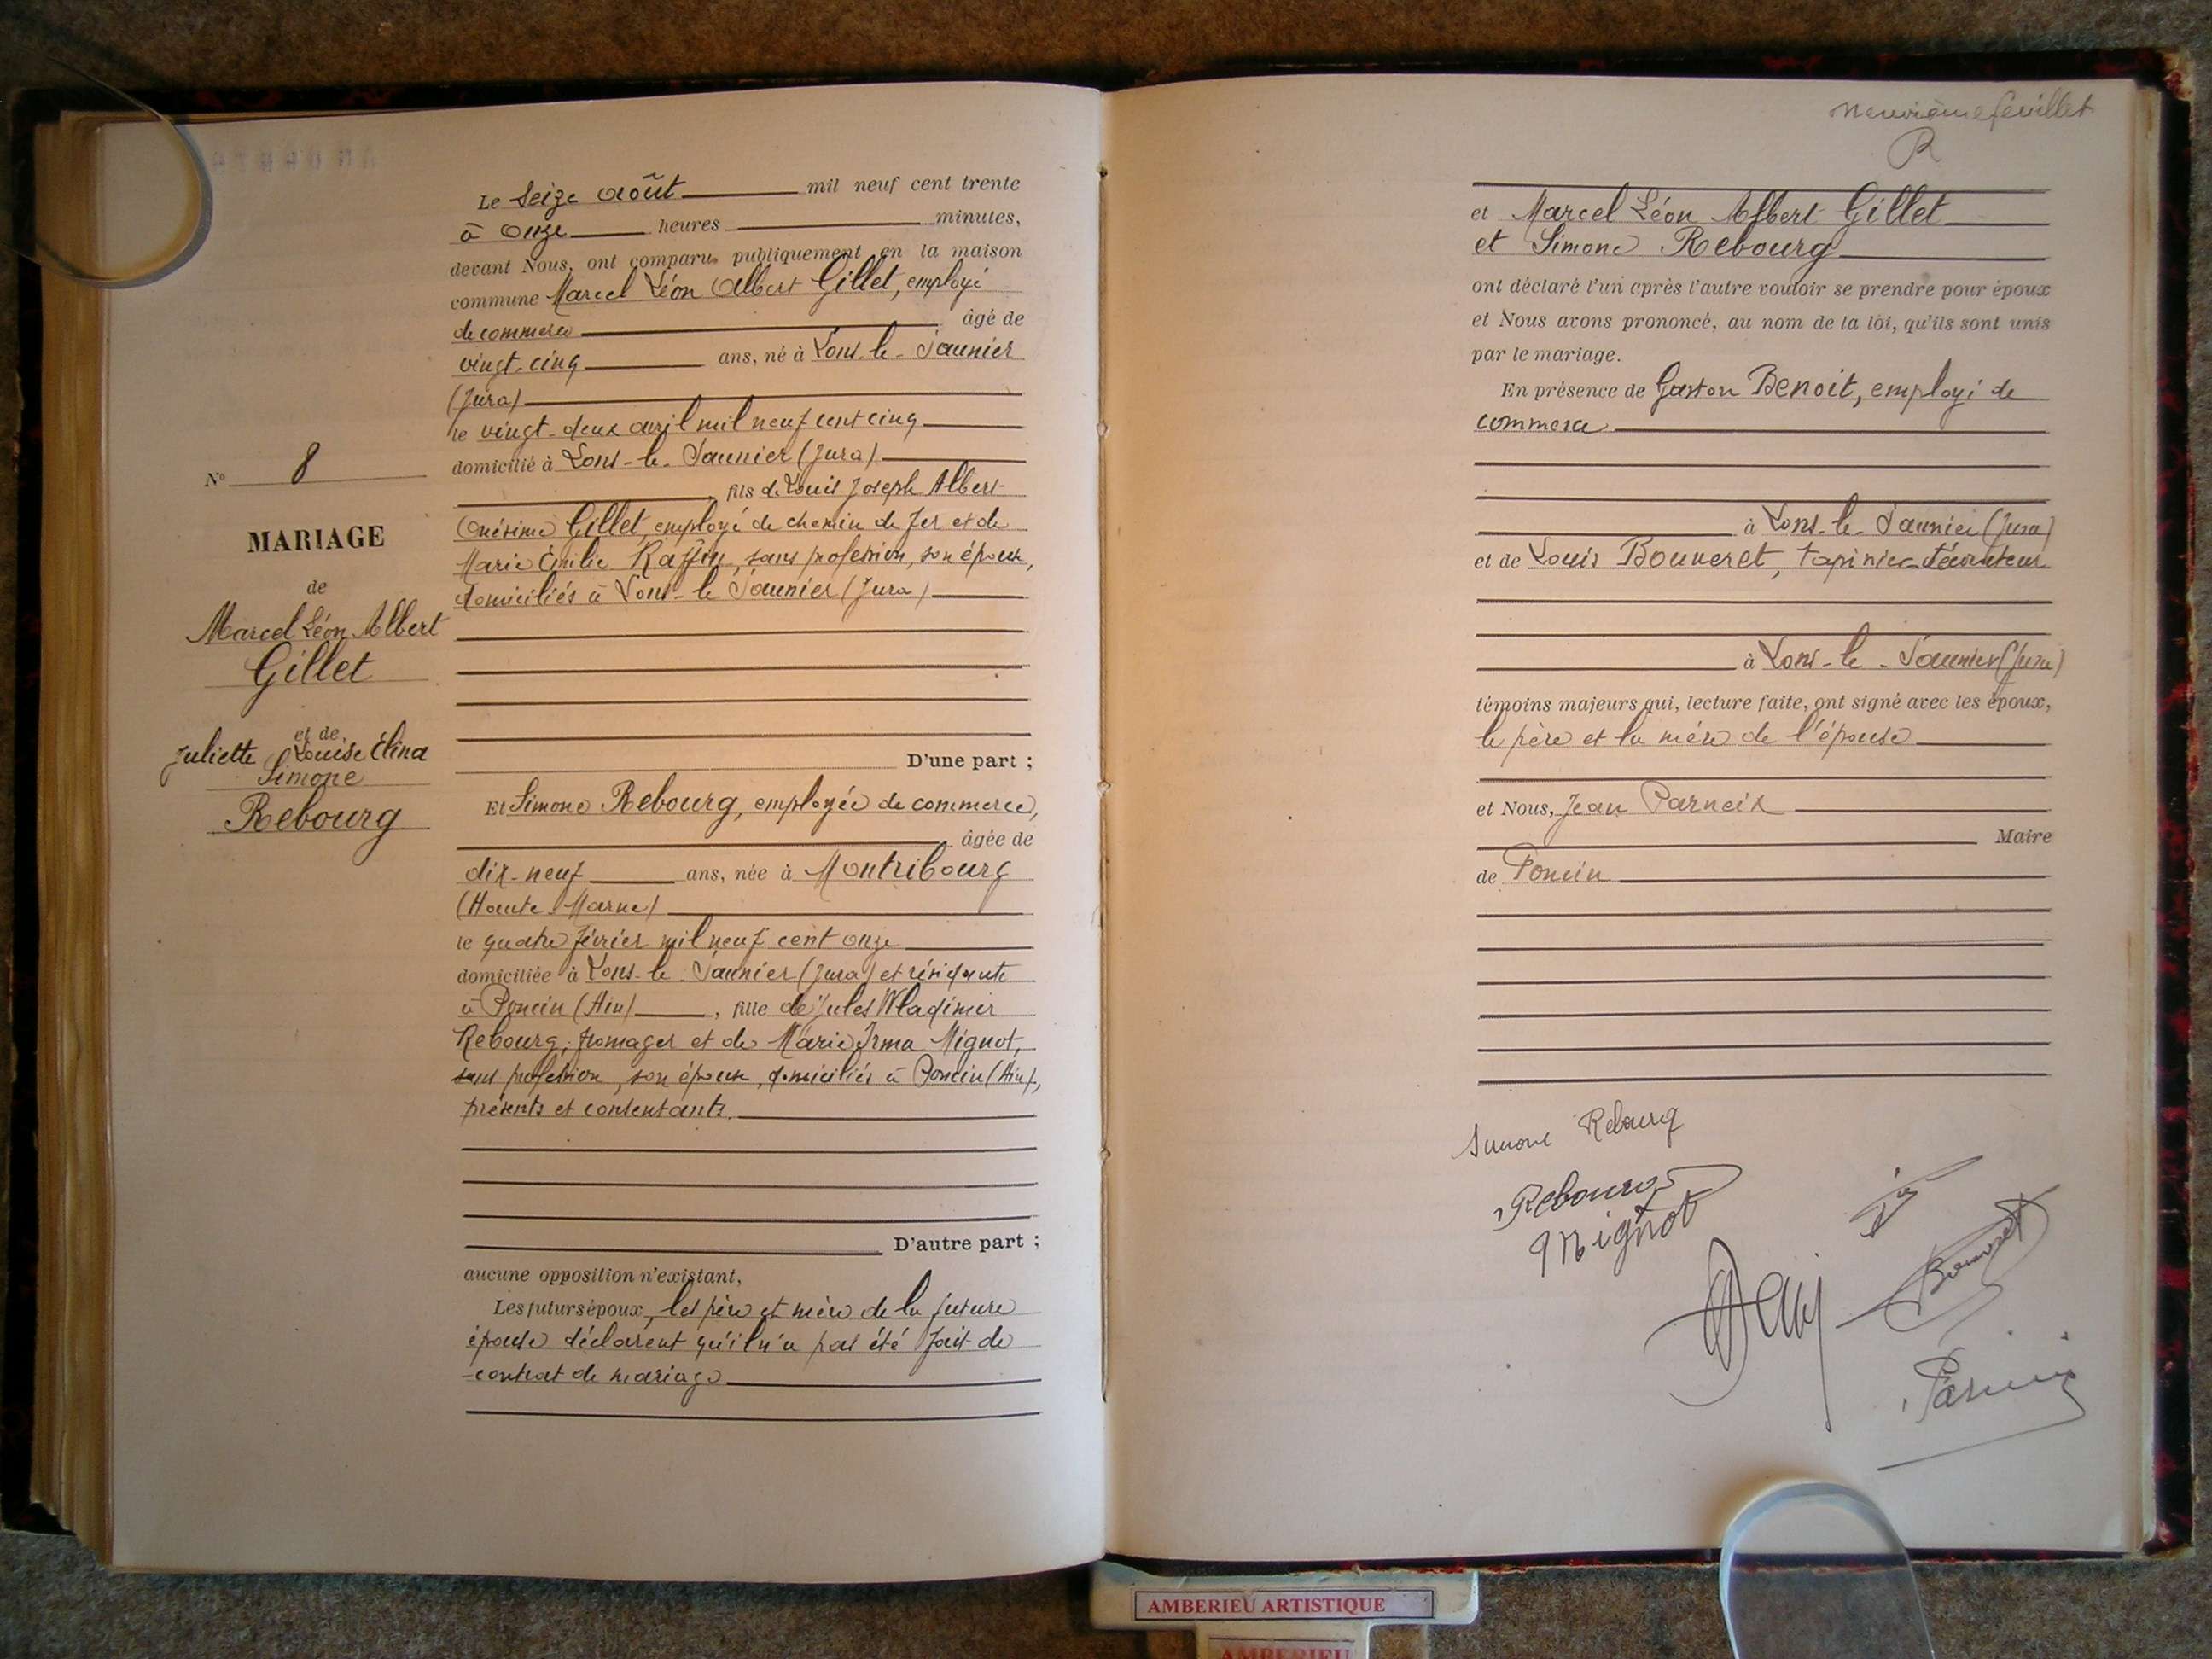 Le Seize août mil neuf cent trente
à onze heures minutes,
devant Nous, ont comparu publiquement en la maison
commune Marcel Léon Albert Gillet, employé
de commerce âgé de
vingt-cinq ans, né à Lons-le-Saunier
(Jura)
le vingt-deux avril mil neuf cent cinq
domicilié à Lons-le-Saunier (Jura)
fils de Louis Joseph Albert
Onésime Gillet, employé de chemin de fer et de
Marie Émilie Raffin, sans profession, son épouse,
domiciliés à Lons-le Saunier (Jura)
D'une part ;
N° 8
MARIAGE
de
Marcel Léon Albert
Gillet
et de
Juliette Louise Élina
Simone
Rebourg
Et Simone Rebourg, employée de commerce,
âgée de
dix-neuf ans, née à Montribourg
(Haute-Marne)
le quatre février mil neuf cent onze
domiciliée à Lons-le-Saunier (Jura) et résidante
à Poncin (Ain), fille de Jules Wladimir
Rebourg, fromager et de Marie Irma Mignot,
sans profession, son épouse, domiciliés à Poncin (Ain),
présents et consentants.
D'autre part ;
aucune opposition n'existant,
Les futurs époux, les père et mère de la future
épouse déclarent qu'il n'a pas été fait de
contrat de mariage
neuvième feuillet
et Marcel Léon Albert Gillet
et Simone Rebourg
ont déclaré l'un après l'autre vouloir se prendre pour époux
et Nous avons prononcé, au nom de la loi, qu'ils sont unis
par le mariage.
En présence de Gaston Benoit, employé de
commerce
à Lons-le-Saunier (Jura)
et de Louis Bouveret, tapissier décorateur
à Lons-le-Saunier (Jura)
témoins majeurs qui, lecture faite, ont signé avec les époux,
le père et la mère de l'épouse
et Nous, Jean Parneix
Maire
de Poncin
Simone Rebourg
Rebourg
Mignot
Bouveret
AMBERIEU ARTISTIQUE
AMBERIEU